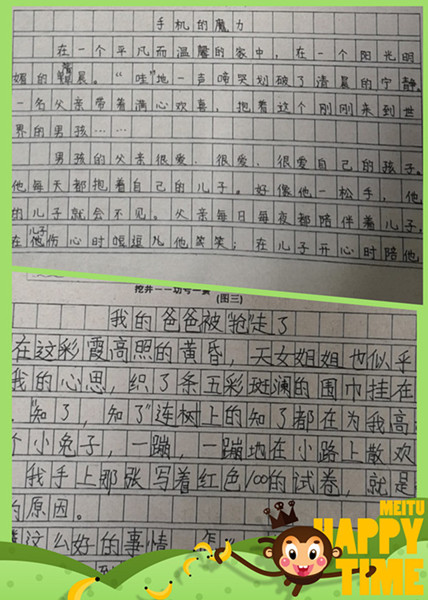 手机的魔力
在一个平凡而温馨的家中，在一个阳光明
媚的清晨。“哇”地一声啼哭划破了清晨的宁静。
一名父亲带着满心欢喜，抱着这个刚刚来到世
界的男孩……
男孩的父亲很爱、很爱、很爱自己的孩子。
他每天都抱着自己的儿子。好像他一松手，他
的儿子就会不见。父亲每日每夜都陪伴着儿子，
在儿子伤心时哏逗儿他笑笑；在儿子开心时陪他
(图三)
我的爸爸被“抢”走了
在这彩霞高照的黄昏，天女姐姐也似乎
我的心思，织了条五彩斑斓的围巾挂在
“知了，知了”连树上的知了都在为我高
个小兔子，一蹦，一蹦地在小路上散欢
我手上那张写着红色100的试卷，就是
的原因。
这么好的事情
MEITU
HAPPY
TIME